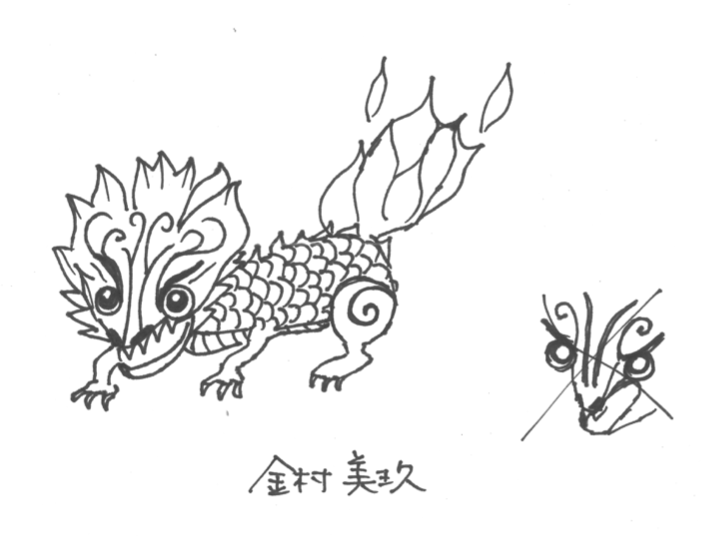 金村美玖